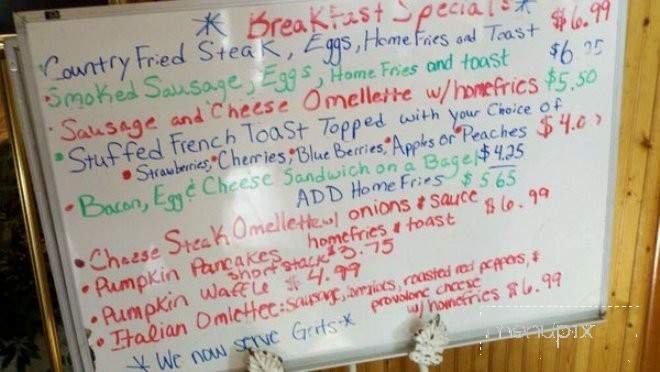 * Breakfast Specials *
Country Fried Steak, Eggs, Home Fries and Toast $6.99
• Smoked Sausage, Eggs, Home Fries and toast $6
• Sausage and Cheese Omellette w/homefries $5.50
• Stuffed French Toast Topped with your Choice of
• Strawberries, • Cherries, • Blue Berries, • Apples or • Peaches $4.0
• Bacon, Egg & Cheese Sandwich on a Bagel $4.25
ADD Home Fries $5.65
• Cheese Steak Omellette w/ onions & sauce $6.99
homefries & toast
• Pumpkin Pancakes short stack $3.75
• Pumpkin Waffle $4.99
• Italian Omlettee: sausage, roasted red peppers, &
provolone cheese
w/ homefries $6.99
* We now serve Grits *
menupix